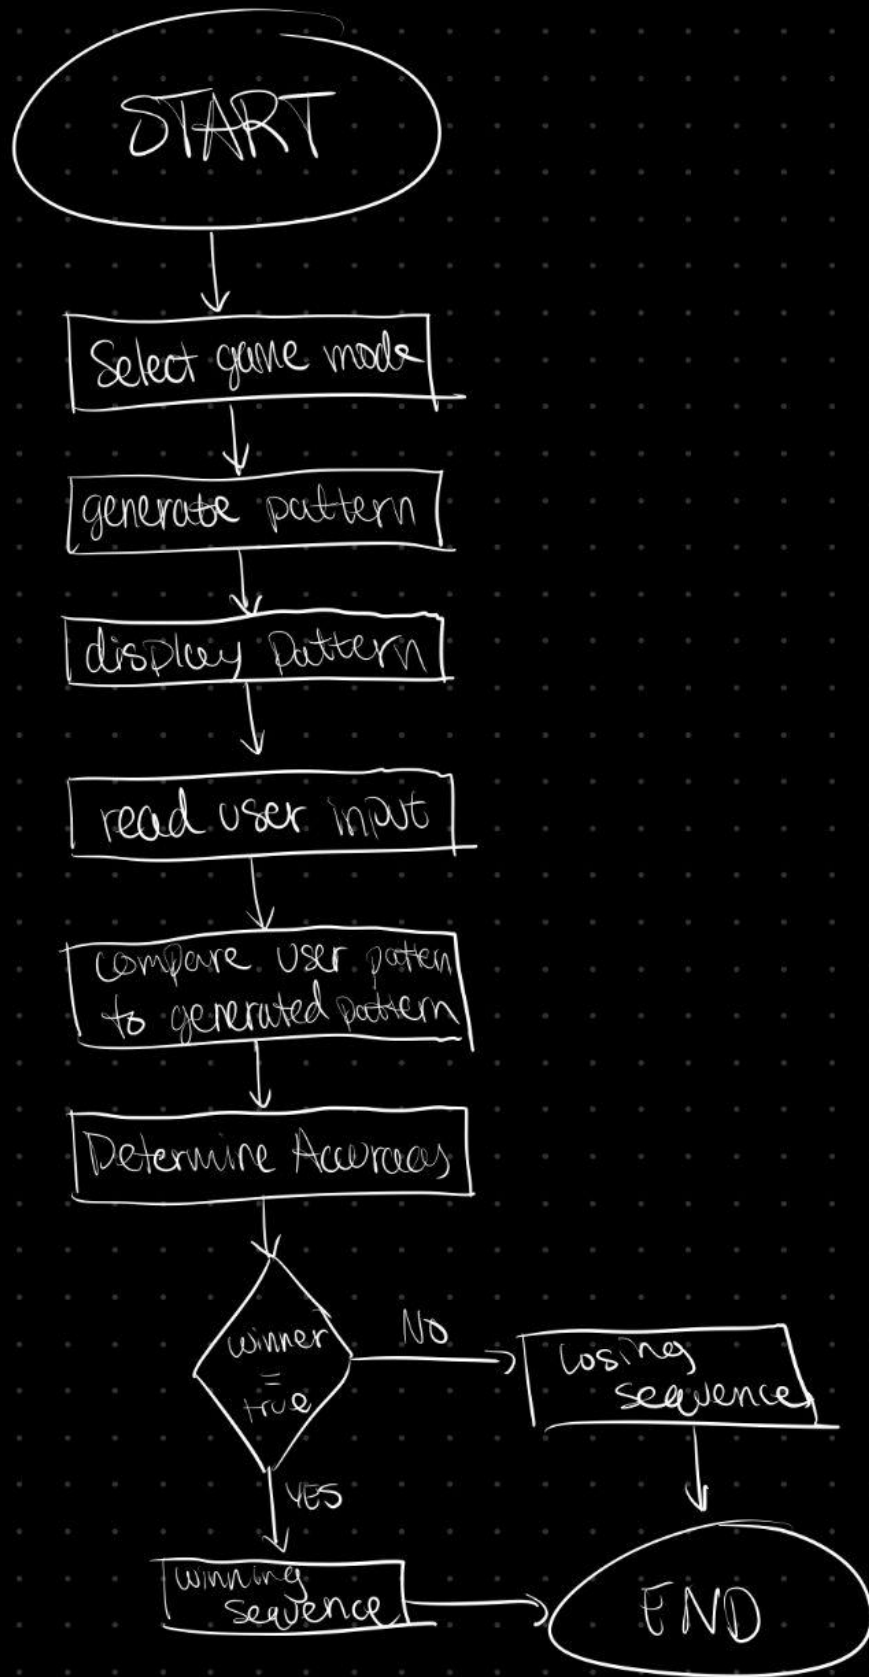 START
Select game mode
generate pattern
display pattern
read user input
compare user pattern
to generated pattern
Determine Accuracy
winner
=
true
NO
losing
sequence
YES
winning
sequence
END